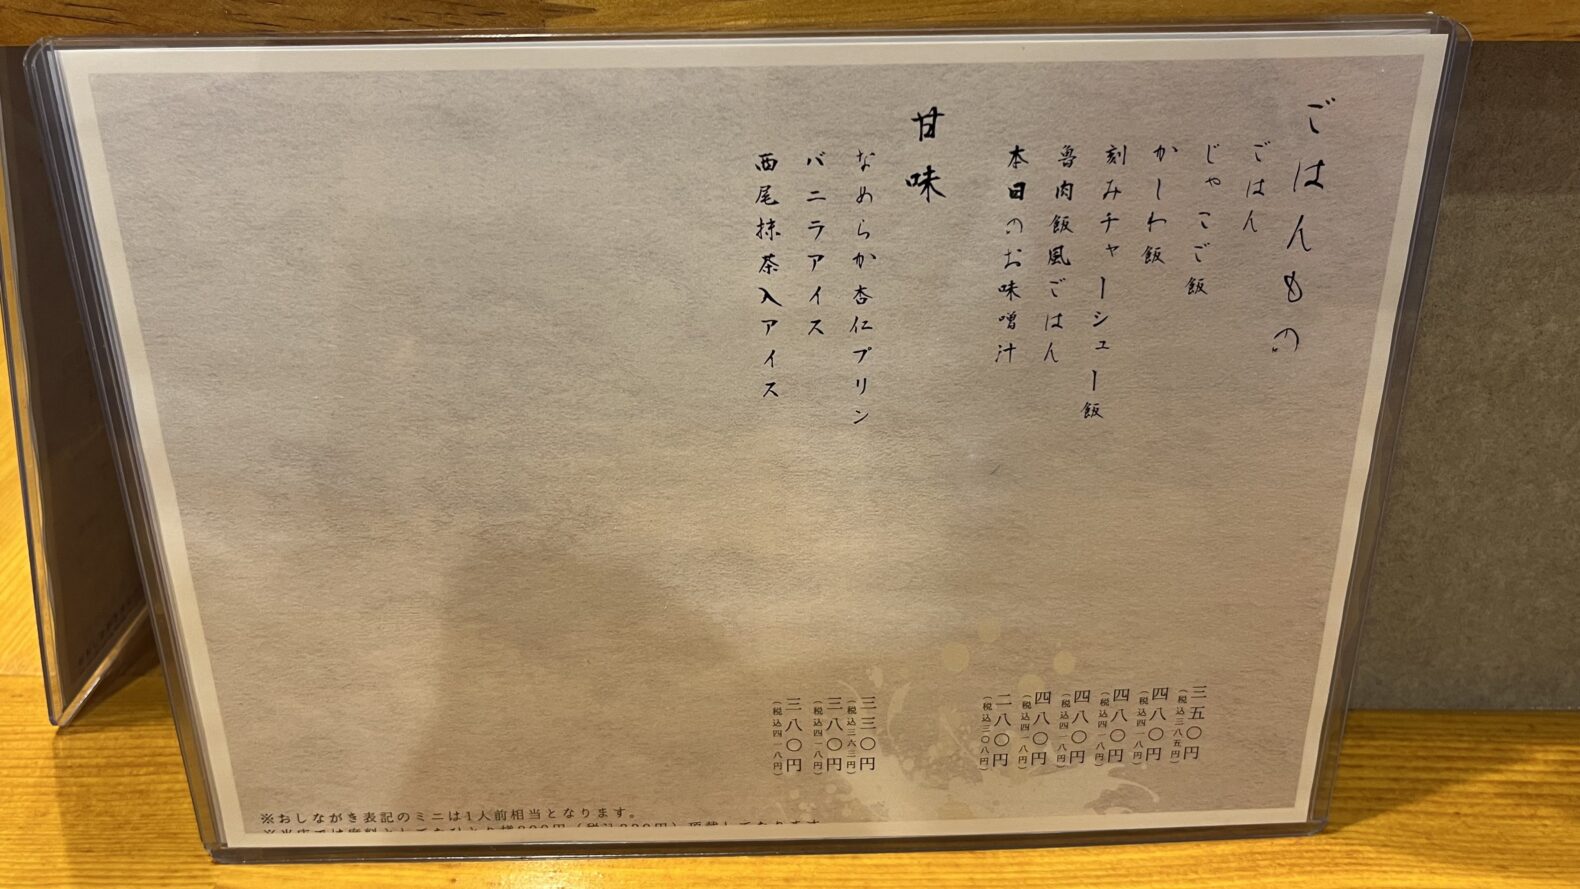 ごはんもの
ごはん 三五〇円(税込三八五円)
じゃこご飯 四八〇円(税込四一八円)
かしわ飯 四八〇円(税込四一八円)
刻みチャーシュー飯 四八〇円(税込四一八円)
魯肉飯風ごはん 四八〇円(税込四一八円)
本日のお味噌汁 二八〇円(税込三〇八円)
甘味
なめらか杏仁プリン 三三〇円(税込三六三円)
バニラアイス 三八〇円(税込四一八円)
西尾抹茶入アイス 三八〇円(税込四一八円)
※おしながき表記のミニは1人前相当となります。